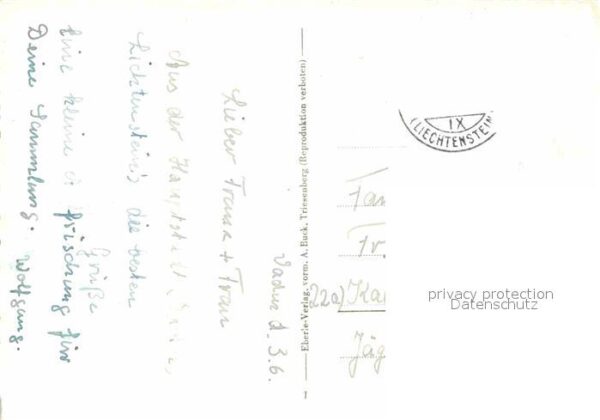 Vaduz d. 3.6.
Lieber Franz + Frau
Aus der Hauptstadt
Lichtenstein's die besten
Grüße
Eine kleine frischung für
Deine Sammlung. Wolfgang.
Eberle-Verlag, vorm. A. Buck, Triesenberg (Reproduktion verboten)
IX
(LIECHTENSTEIN
22a) Ka
Jäg
privacy protection
Datenschutz